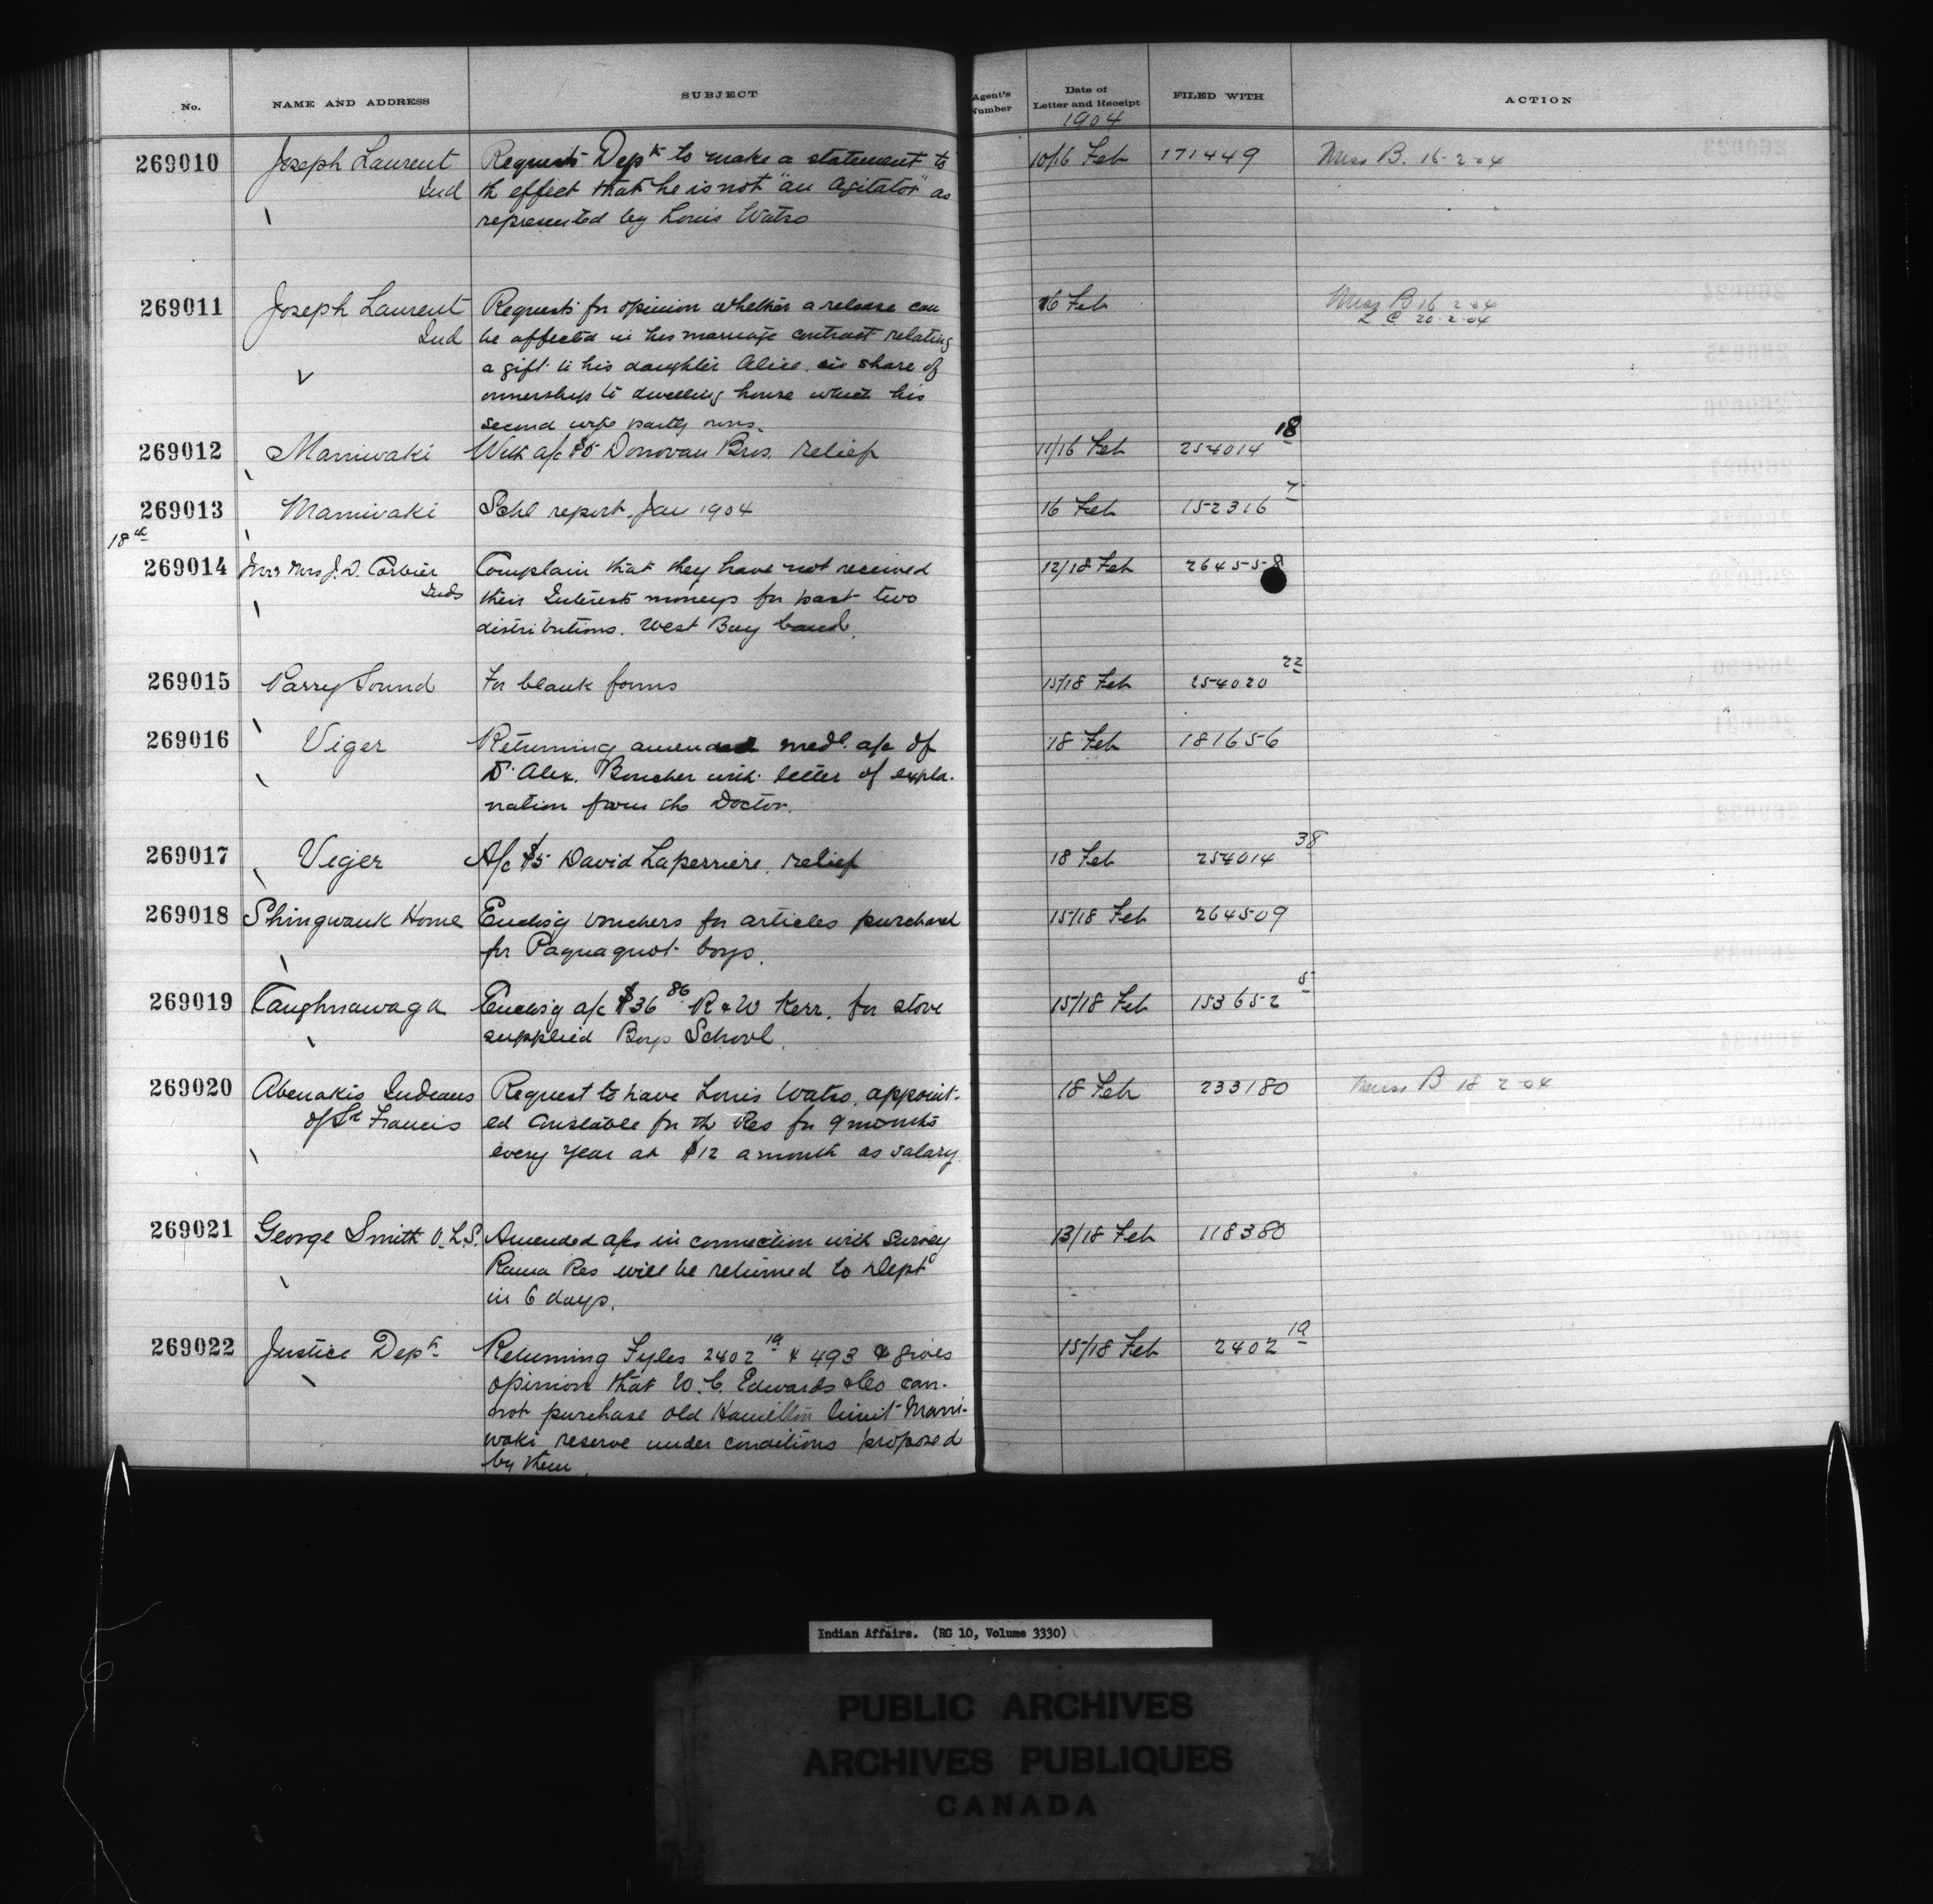 No. NAME AND ADDRESS SUBJECT Agent's Number Date of Letter and Receipt FILED WITH ACTION
1904
269010 Joseph Laurent Requests Dept to make a statement to 10/16 Feb 171449 Miss B. 16-2-04
Ind th effect that he is not "an agitator" as
represented by Louis Watso
269011 Joseph Laurent Requests for opinion whether a release can 16 Feb Miss B 16 2 04
Ind be affected in his marriage contract relating L C 20-2-04
a gift to his daughter Alice in share of
ownership to dwelling house which his
second wife partly owns.
269012 Maniwaki With a/c $5 Donovan Bros. relief 11/16 Feb 254014 18
269013 Maniwaki Schl report, Jan 1904 16 Feb 152316 7
18th
269014 Mr & Mrs J. D. Corbier Complain that they have not received 12/18 Feb 264558
Inds their Interests moneys for past two
distributions. West Bay band.
269015 Parry Sound For blank forms 15/18 Feb 254020 22
269016 Viger Returning amended medl. a/c of 18 Feb 181656
Dr. Alex. Boucher with letter of expla-
nation from the Doctor.
269017 Viger A/c $5 David Laperriere, relief 18 Feb 254014 38
269018 Shingwauk Home Enclos'g vouchers for articles purchased 15/18 Feb 264509
for Paquaquot boys.
269019 Caughnawaga Enclos'g a/c $36 86 R & W Kerr, for stove 15/18 Feb 153652 5
supplied Boys School.
269020 Abenakis Indians Request to have Louis Watso appoint- 18 Feb 233180 Miss B 18 2 04
of St Francis ed Constable for th Res for 9 months
every year at $12 a month as salary.
269021 George Smith O.L.S. Amended a/cs in connection with survey 13/18 Feb 118380
Rama Res will be returned to Dept
in 6 days.
269022 Justice Dept Returning Fyles 2402 19 & 493 & gives 15/18 Feb 2402 19
opinion that W. C. Edwards & Co can-
not purchase old Hamilton limit Mani-
waki reserve under conditions proposed
by them.
Indian Affairs. (RG 10, Volume 3330)
PUBLIC ARCHIVES
ARCHIVES PUBLIQUES
CANADA